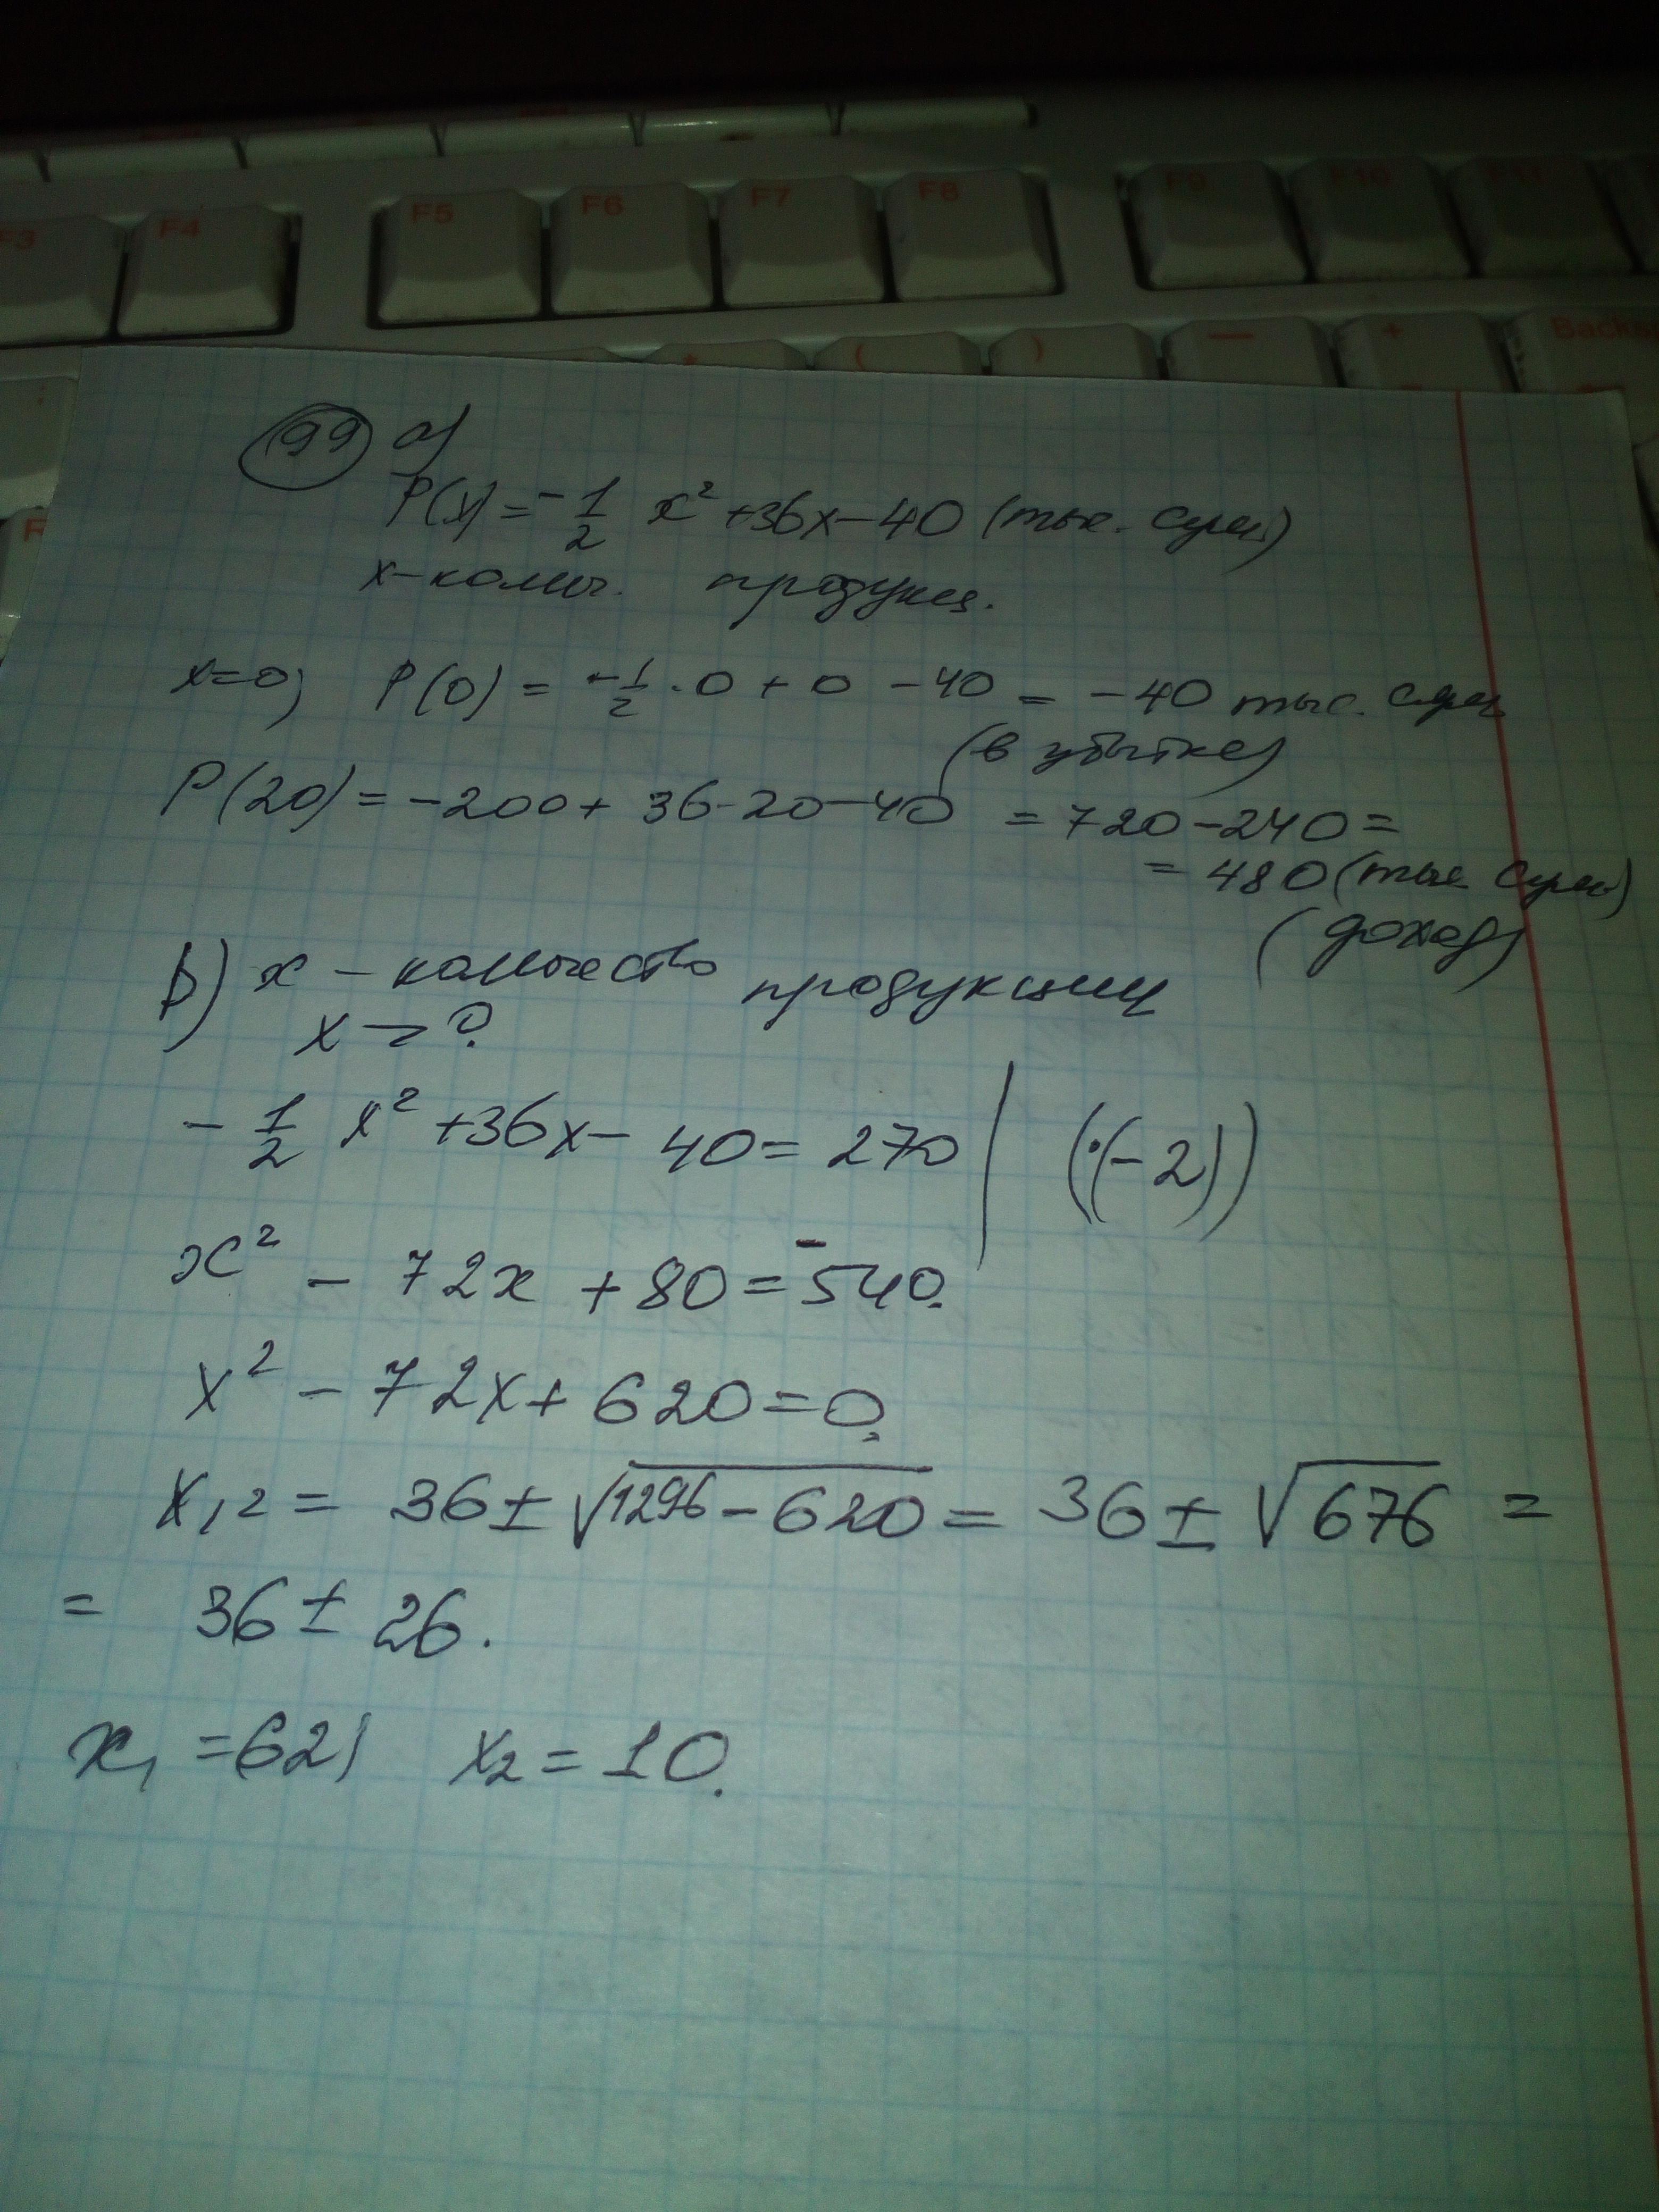 F3 F4 F5 F6 F7 F8 F9 F10 F11
* ( ) — + Backs
99 a)
P(x) = -1/2 x² + 36x - 40 (тыс. сум)
x - колич. продукц.
x = 0; P(0) = -1/2 · 0 + 0 - 40 = -40 тыс. сум
(в убытке)
P(20) = -200 + 36·20 - 40 = 720 - 240 =
= 480 (тыс сум)
(доход)
b) x - количество продукции
x - ?
- 1/2 x² + 36x - 40 = 270 | (·(-2))
x² - 72x + 80 = -540.
x² - 72x + 620 = 0.
x₁₂ = 36 ± √1296 - 620 = 36 ± √676 =
= 36 ± 26.
x₁ = 62; x₂ = 10.